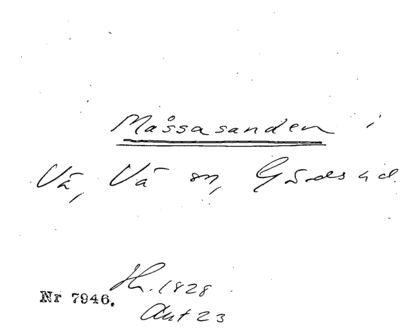 Måssasanden i
Vä, Vä sn, Gärds hd.
Nr 7946. Hn. 1828
Akt 23